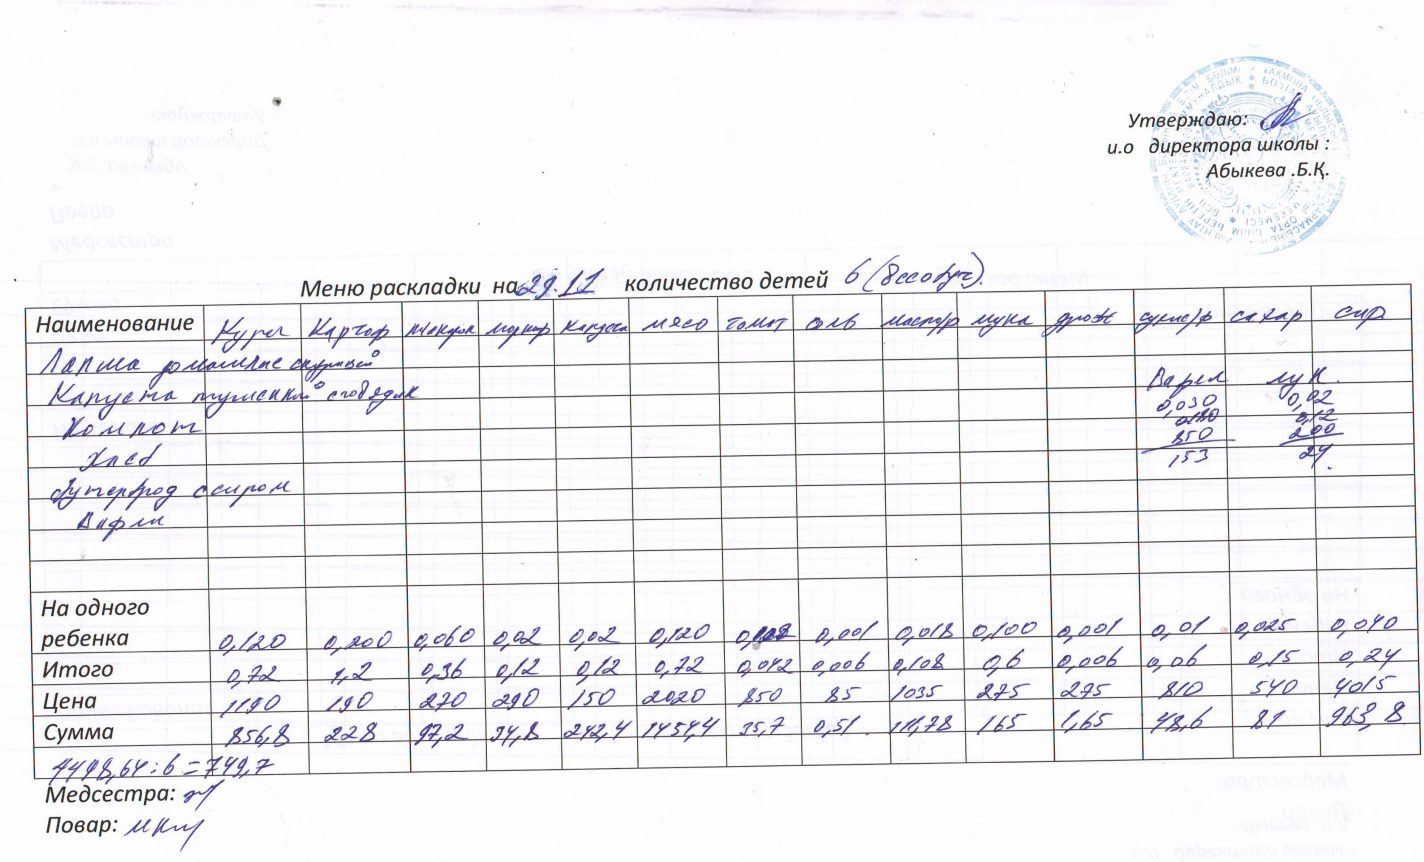 Утверждаю:
и.о директора школы :
Абыкева .Б.Қ.
Меню раскладки на 29.11 количество детей 6 (Всеобуч).
Наименование Куры Картоф морков капуста мясо томат соль масл/р мука дрож сухие/ф сахар сыр
Лапша домашные с курицей
Капуста тушенный с говядин Варен лук
0,030 0,02
Компот 0,180 0,12
850 200
Хлеб 153 24
Бутерброд с сыром
Вафли
На одного
ребенка 0,120 0,200 0,060 0,02 0,02 0,120 0,001 0,018 0,100 0,001 0,01 0,025 0,040
Итого 0,72 1,2 0,36 0,12 0,12 0,72 0,042 0,006 0,108 0,6 0,006 0,06 0,15 0,24
Цена 1190 190 270 290 150 2020 850 85 1035 275 275 810 540 4015
Сумма 856,8 228 97,2 34,8 242,4 1454,4 35,7 0,51 111,78 165 1,65 48,6 81 963,8
4498,64:6=749,7
Медсестра:
Повар: